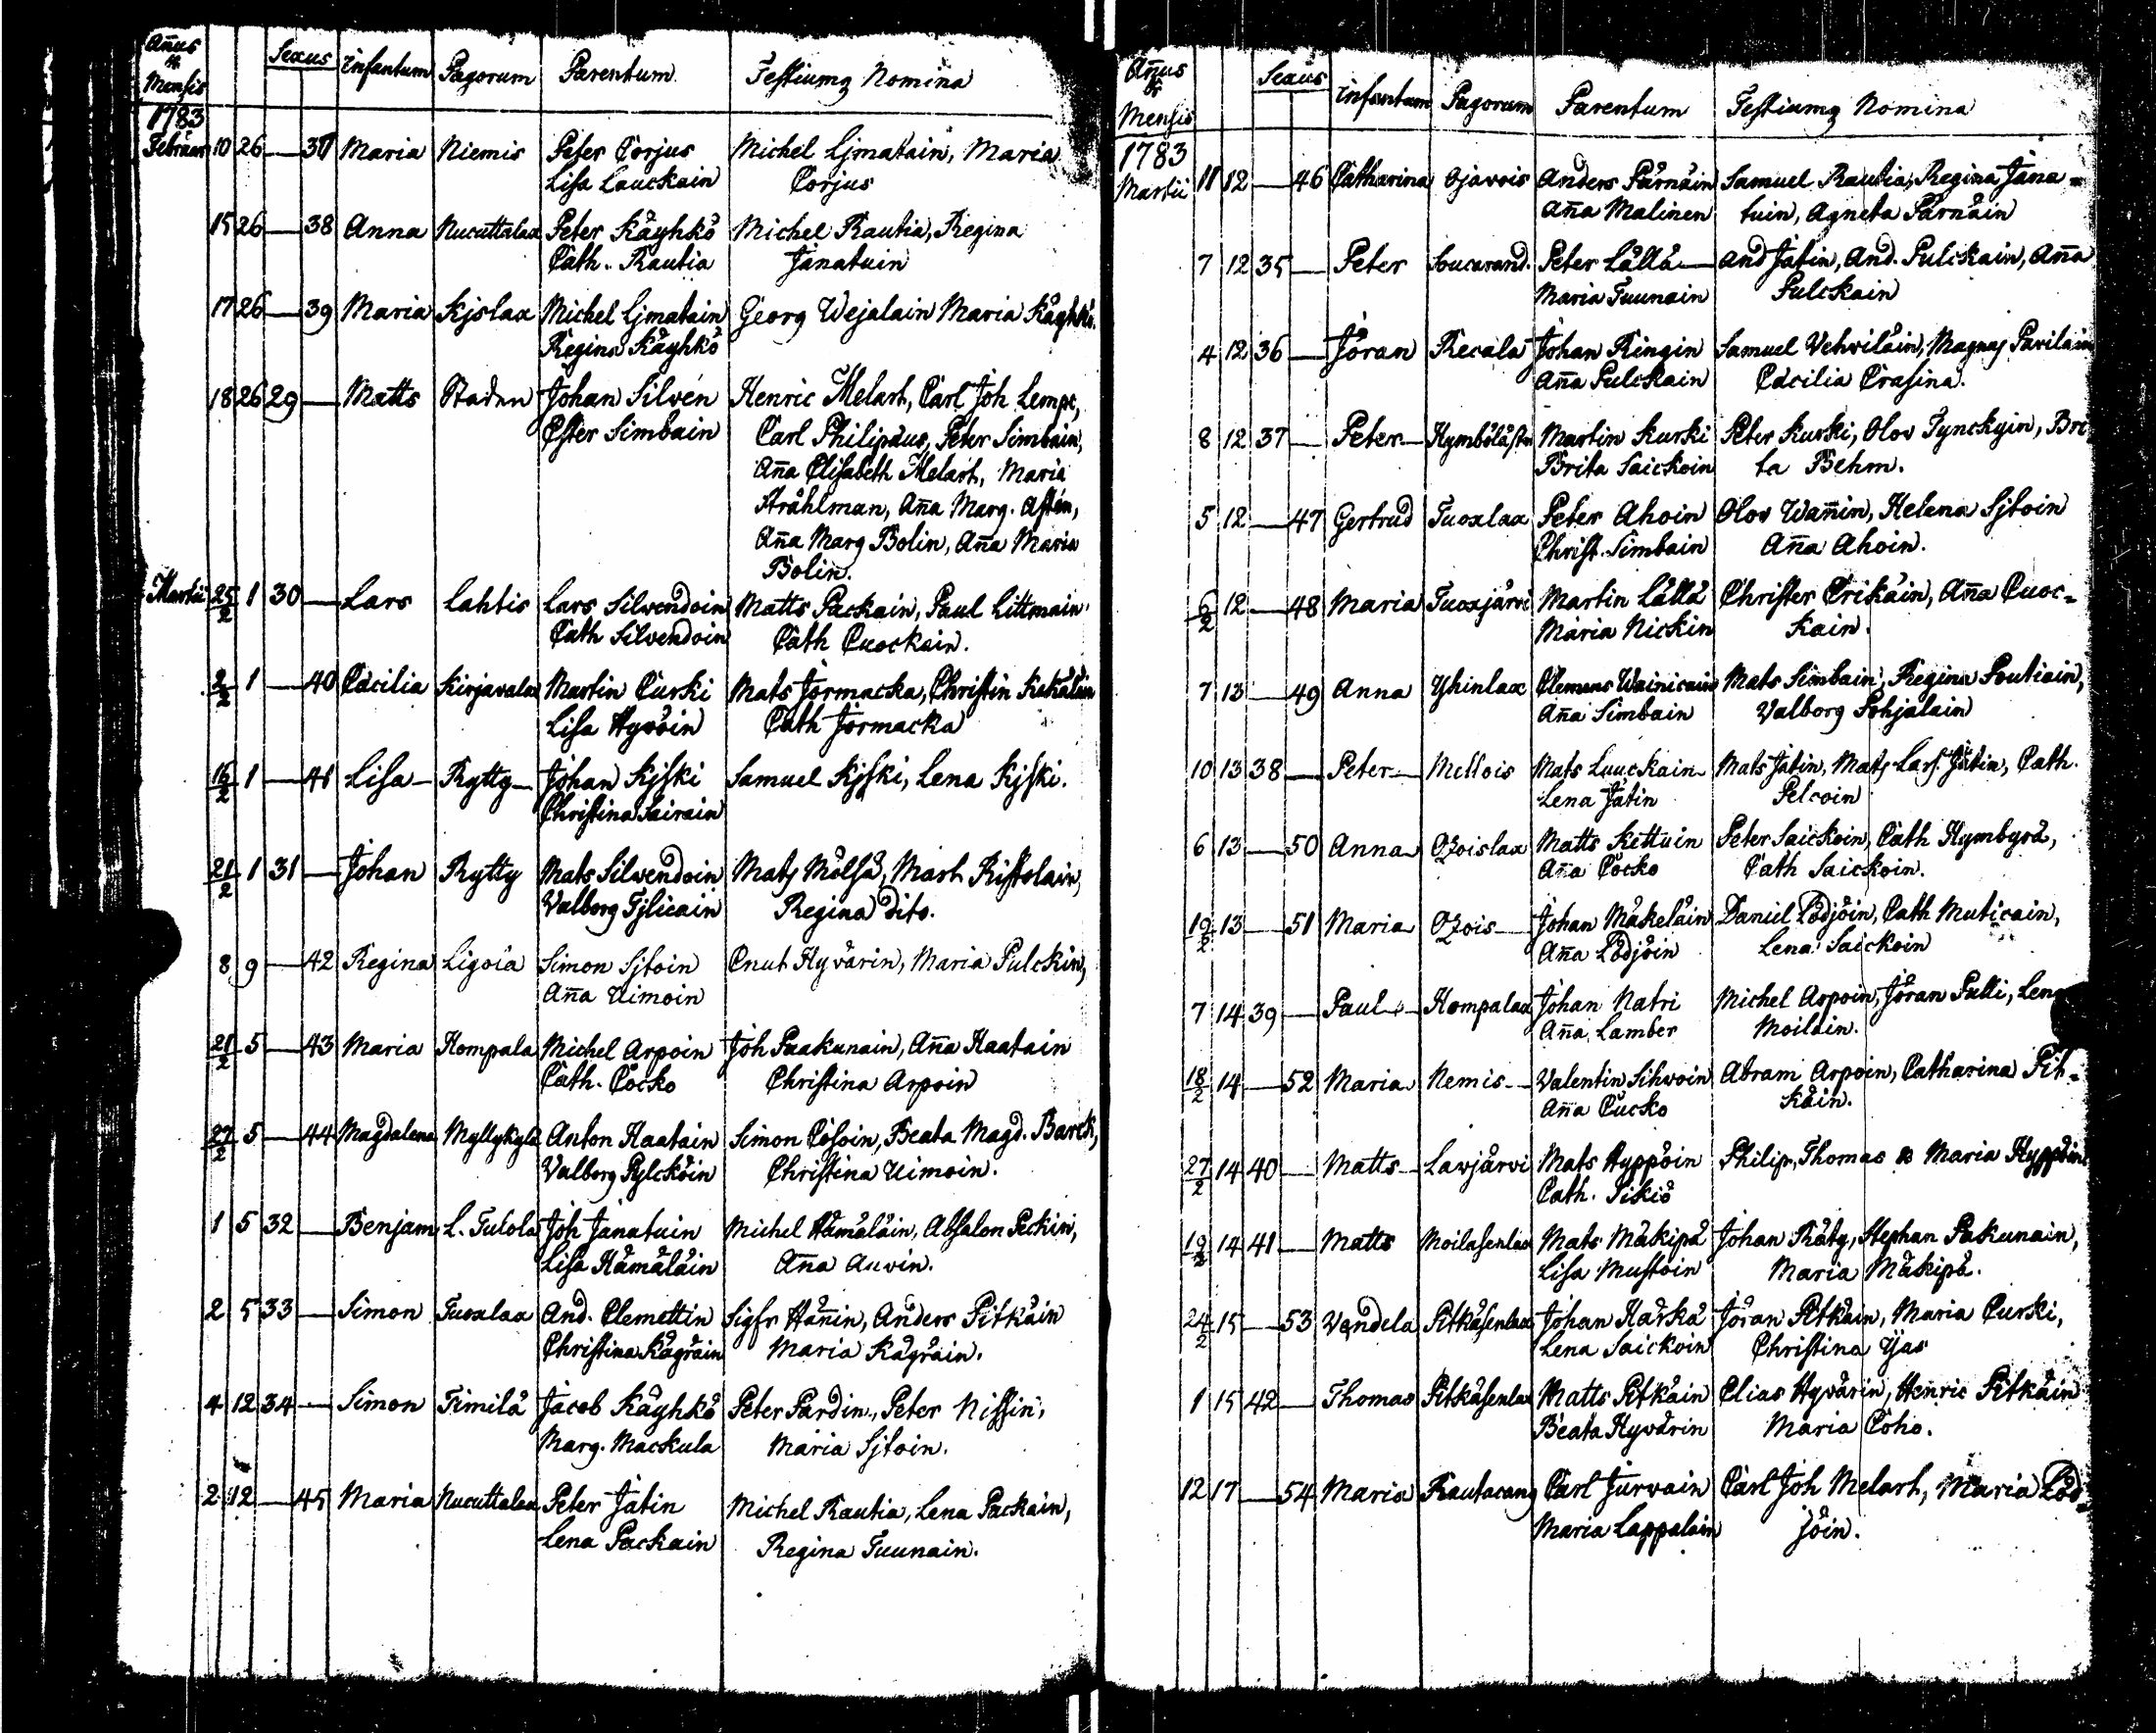 Añus
&
Mensis
Sexus Infantum Pagorum Parentum Testiumq Nomina
1783
Februar 10 26 — 37 Maria Niemis Peter Corjus Michel Ljmatain, Maria
Lisa Lauckain Corjus
15 26 — 38 Anna Nucuttalax Peter Käyhkö Michel Rautia, Regina
Cath. Rautia Janatuin
17 26 — 39 Maria Kjslax Michel Ljmatain Georg Wejalain Maria Käyhkö.
Regina Käyhkö
18 26 29 — Matts Staden Johan Silvén Henric Melart, Carl Joh Lempe,
Ester Simbain Carl Philipæus, Peter Simbain,
Aña Elisabeth Melart, Maria
Stråhlman, Aña Marg. Asten,
Aña Marg Bolin, Aña Maria
Bolin.
Martii 25/2 1 30 — Lars Lahtis Lars Silvendoin Matts Packain, Paul Littmain
Cath Silvendoin Cath Cuockain.
2/2 1 — 40 Cæcilia Kirjavalax Martin Curski Mats Jormacka, Christin Kakäläin
Lisa Hyvöin Cath Jormacka
16/2 1 — 41 Lisa — Rytty — Johan Kjski Samuel Kjski, Lena Kjski.
Christina Sairain
21/2 1 31 — Johan Rytty Mats Silvendoin Mats Mölsä, Mart. Ristolain,
Valborg Tjlicain Regina dito.
8 9 — 42 Regina Ligoia Simon Sjtoin Cnut Hyvärin, Maria Pulckin,
Aña Uimoin
21/2 5 — 43 Maria Hompala Michel Arpoin Joh Paakunain, Aña Haatain
Cath. Cocko Christina Arpoin
27/2 5 — 44 Magdalena Myllykylä Anton Haatain Simon Cosoin, Beata Magd. Barck,
Valborg Pylcköin Christina Uimoin.
1 5 32 — Benjam L. Tulola Joh Janatuin Michel Hämäläin, Absalon Peckin,
Lisa Hämäläin Aña Auvin.
2 5 33 — Simon Tuoxlax And. Clemettin Sigfr Hänin, Anders Pitkäin
Christina Kägräin Maria Kägräin.
4 12 34 — Simon Timilä Jacob Käyhkö Peter Pardin, Peter Nissin,
Marg. Mackula Maria Sjtoin.
2 12 — 45 Maria Nucuttalax Peter Jätin Michel Rautia, Lena Packain,
Lena Packain Regina Tuunain.
Añus
&
Mensis
Sexus Infantum Pagorum Parentum Testiumq Nomina
1783
Martii 11 12 — 46 Catharina Ojavois Anders Pärnäin Samuel Rautia, Regina Jana=
Aña Malinen tuin, Agneta Pärnäin
7 12 35 — Peter Soucarand. Peter Lällä — And Jätin, And. Pulckain, Aña
Maria Tuunain Pulckain
4 12 36 — Jöran Recala Johan Ringin Samuel Vehviläin, Magnus Pavilain
Aña Pulckain Cæcilia Crasina.
8 12 37 — Peter — Hymböläst Martin Kurki Peter Kurki, Olov Tynckyin, Bri
Brita Saickoin ta Behm.
5 12 — 47 Gertrud Tuoxlax Peter Ahoin Olov Wañin, Helena Sjtoin
Christ. Simbain Aña Ahoin.
6/2 12 — 48 Maria Tuoxjärvi Martin Lällä Christer Erikäin, Aña Cuoc=
Maria Nickin kain.
7 13 — 49 Anna Yhinlax Clemens Wainicain Mats Simbain, Regina Poutiain,
Aña Simbain Valborg Pohjalain
10 13 38 — Peter — Mellois Mats Lauckain Mats Jätin, Mats Lars. Jätin, Cath.
Lena Jätin Pelcoin
6 13 — 50 Anna Ozoislax Matts Kettuin Peter Saickoin, Cath Hymbyrä,
Aña Cocko Cath Saickoin.
19/2 13 — 51 Maria Ozois — Johan Mäkeläin Daniel Lödjöin, Cath Muticain,
Aña Lödjöin Lena Saickoin
7 14 39 — Paul — Hompalax Johan Natri Michel Arpoin, Jöran Pulli, Lena
Aña Lamber Moilain.
18/2 14 — 52 Maria Nemis — Valentin Sihvoin Abram Arpoin, Catharina Pit=
Aña Cucko käin.
27/2 14 40 — Matts — Lavjärvi Mats Hyppöin Philip, Thomas & Maria Hyppöin
Cath. Sikiö
19/2 14 41 — Matts Moilasenlax Mats Mäkipä Johan Räty, Stephan Pakunain,
Lisa Mustoin Maria Mäkipä.
24/2 15 — 53 Vendela Pitkäsenlax Johan Harkä Jöran Pitkäin, Maria Curki,
Lena Saickoin Christina Yas
1 15 42 — Thomas Pitkäsenlax Matts Pitkäin Elias Hyvärin, Henric Pitkäin
Beata Hyvärin Maria Coho.
12 17 — 54 Maria Rautacang Carl Jurvain Carl Joh Melart, Maria Löd=
Maria Lappalain jöin.